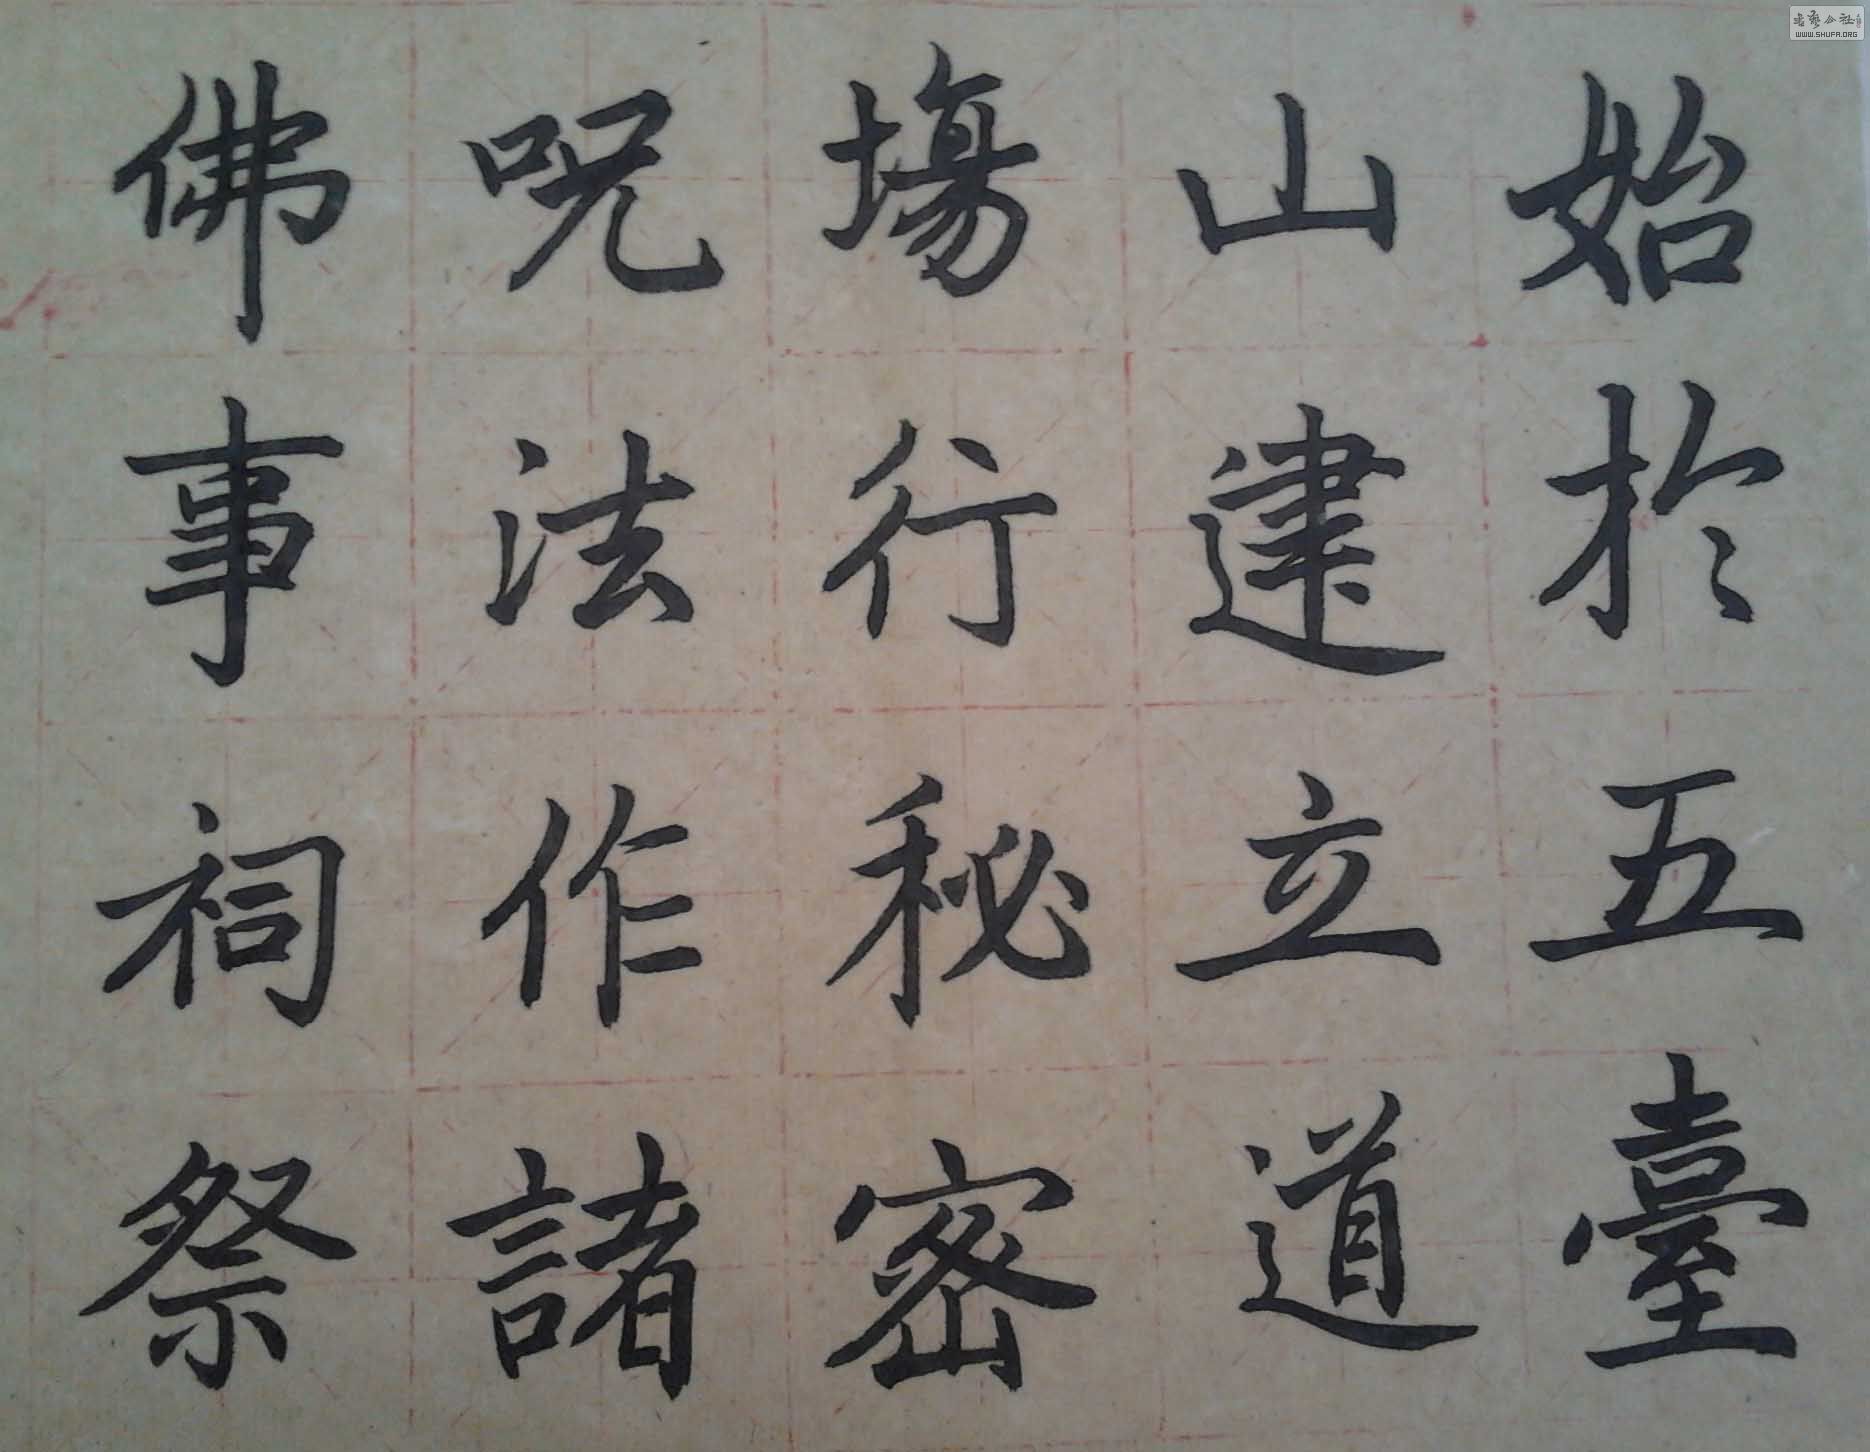 始於五臺
山建立道
場行秘密
呪法作諸
佛事祠祭
WWW.SHUFA.ORG